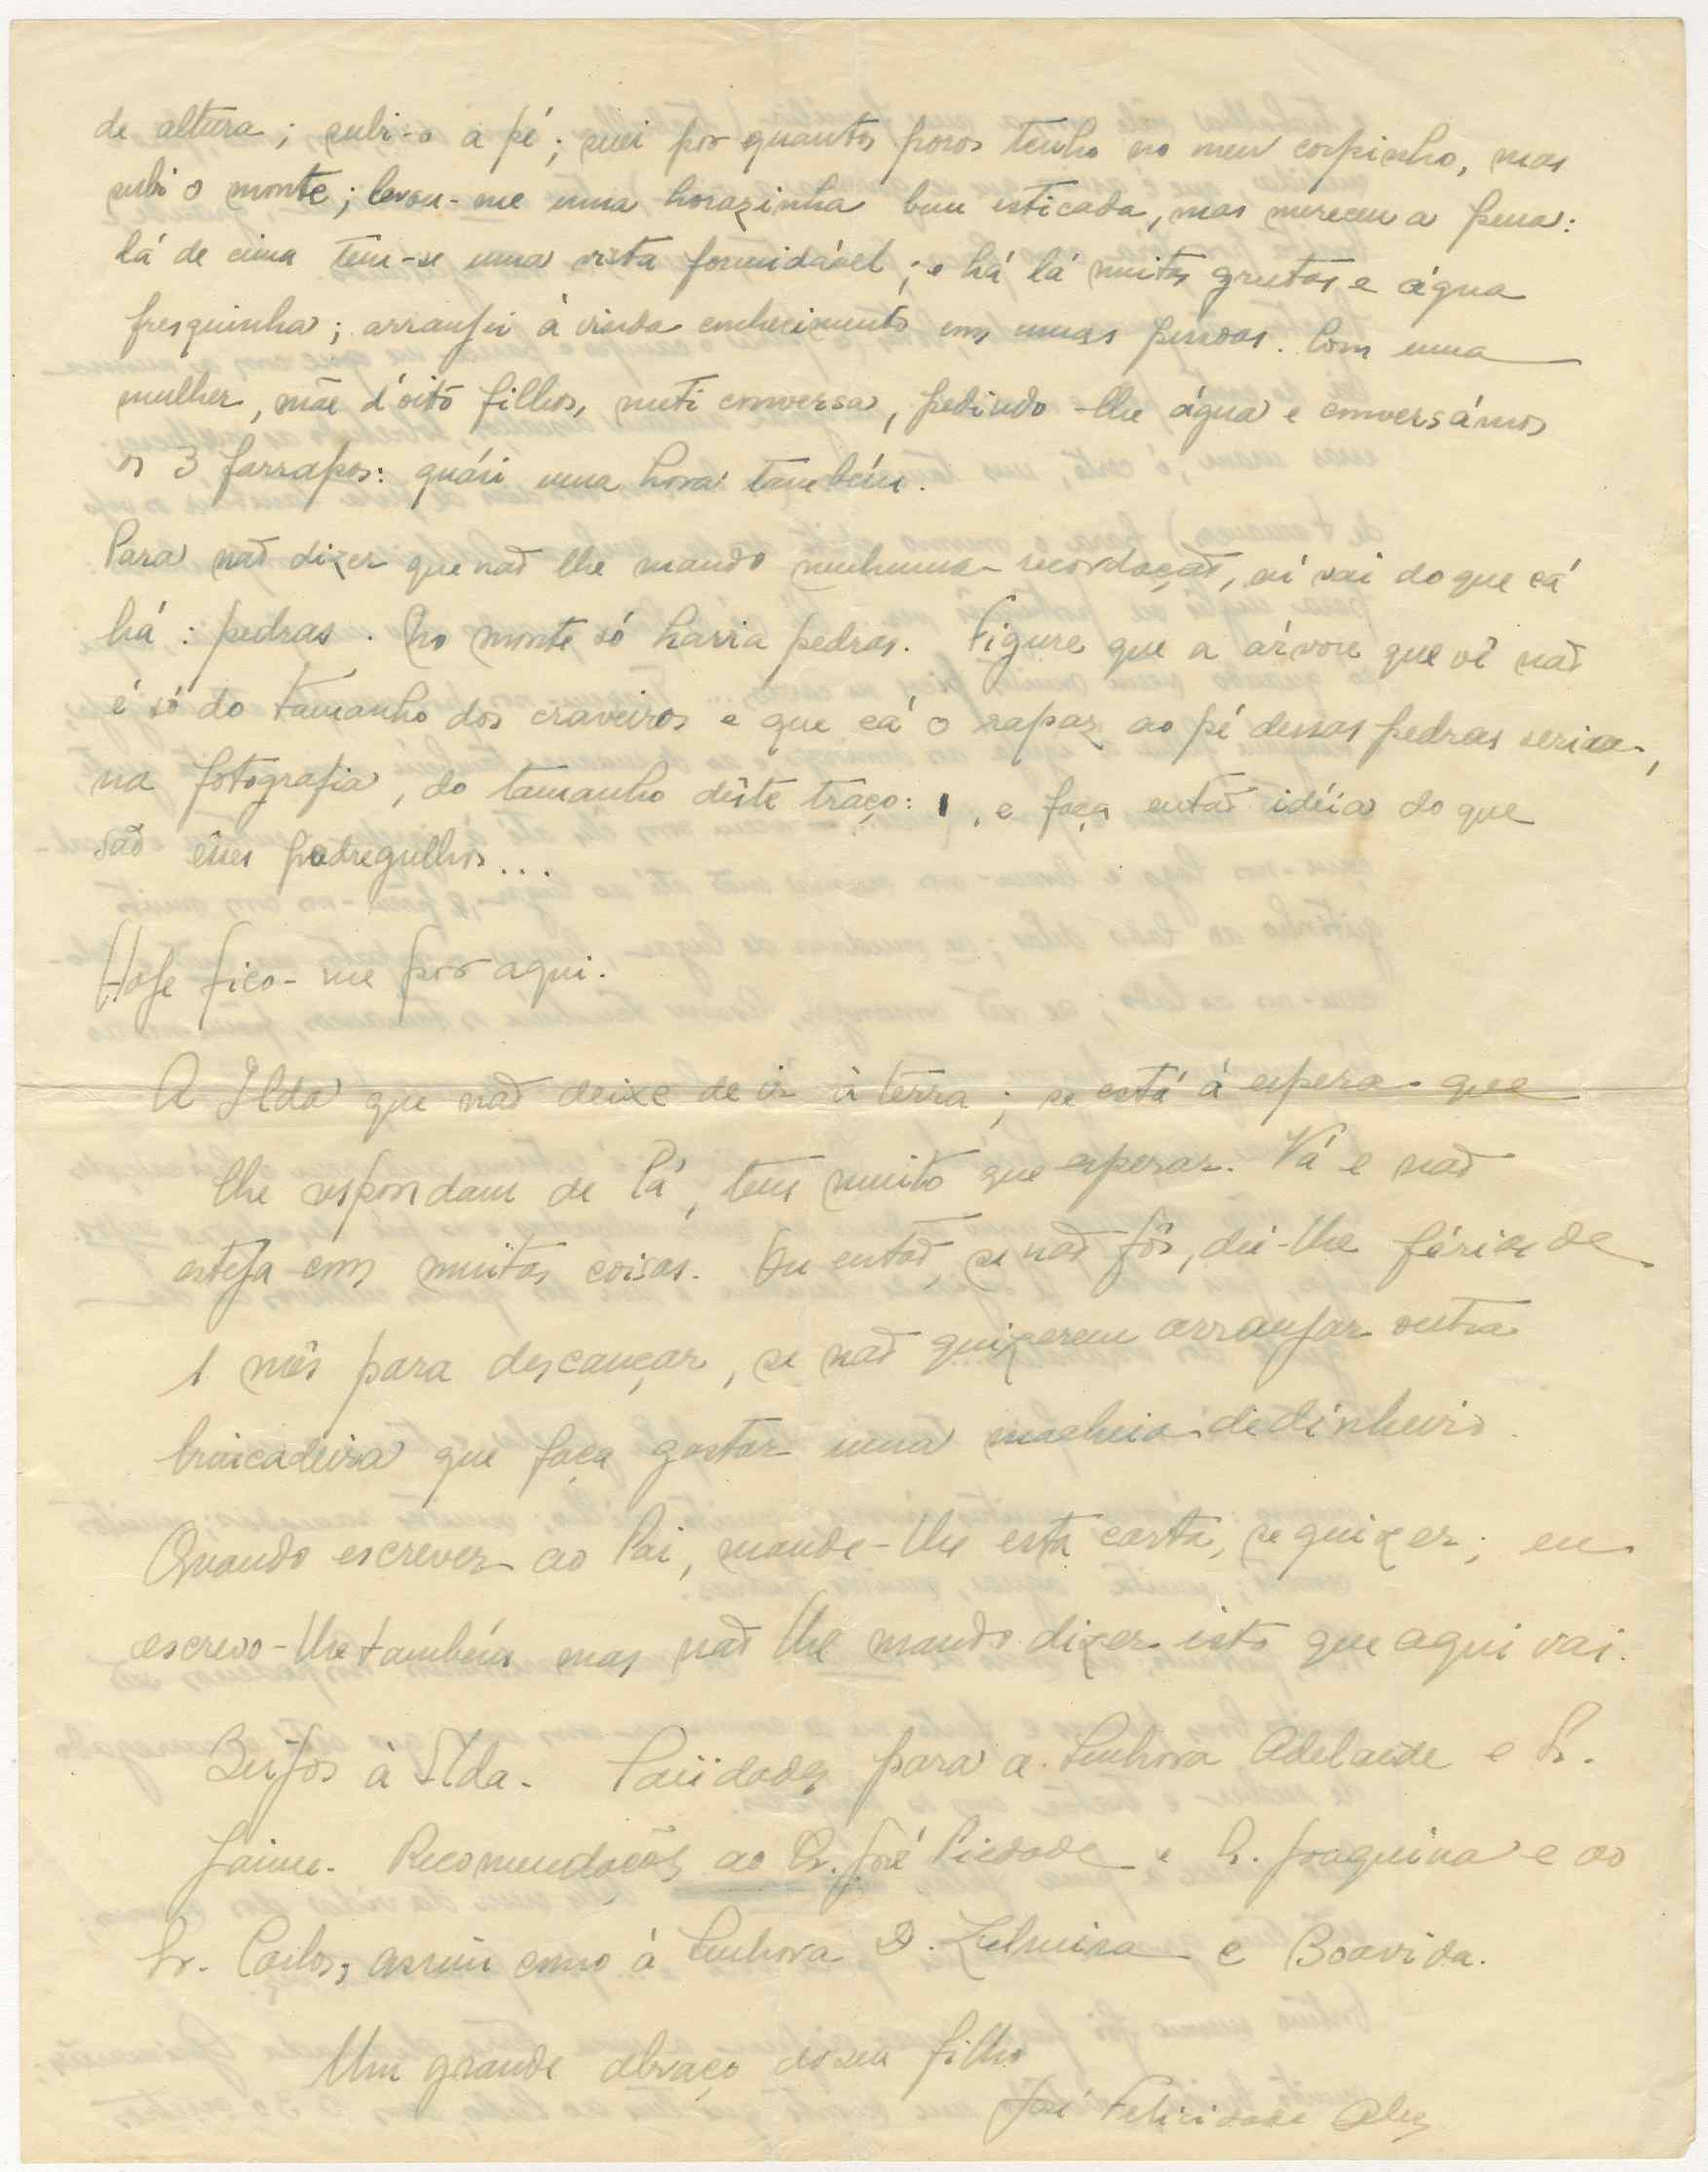 de altura; subi-o a pé; suei por quantos poros tenho no meu corpinho, mas
subi o monte; levou-me uma horazinha bem esticada, mas mereceu a pena:
lá de cima tem-se uma vista formidável; e há lá muitas grutas e água
fresquinha; arranjei à vinda conhecimento com umas pessoas. Com uma
mulher, mãe d'oito filhos, meti conversa, pedindo-lhe água e conversámos
os 3 farrapos: quási uma hora também.
Para não dizer que não lhe mando nenhuma recordação, aí vai do que cá
há: pedras. No monte só havia pedras. Figure que a árvore que vê não
é só do tamanho dos craveiros e que cá o rapaz ao pé dessas pedras seria,
na fotografia, do tamanho dêste traço: ı, e faça então idéia do que
são êsses pedregulhos...
Hoje fico-me por aqui.
A Ilda que não deixe de ir à terra; se está á espera que
lhe respondam de lá, tem muito que esperar. Vá e não
esteja com muitas coisas. Ou então, se não fôr, dei-lhe férias de
1 mês para descançar, se não quizerem arranjar outra
brincadeira que faça gastar uma macheia de dinheiro.
Quando escrever ao Pai, mande-lhe esta carta, se quizer; eu
escrevo-lhe também mas não lhe mando dizer isto que aqui vai.
Beijos à Ilda. Saüdades para a Senhora Adelaide e Sr.
Jaime. Recomendações ao Sr. José Piedade e S. Joaquina e ao
Sr. Carlos, assim como à Senhora D. Zulmira e Boavida.
Um grande abraço do seu filho
José Felicidade Alves